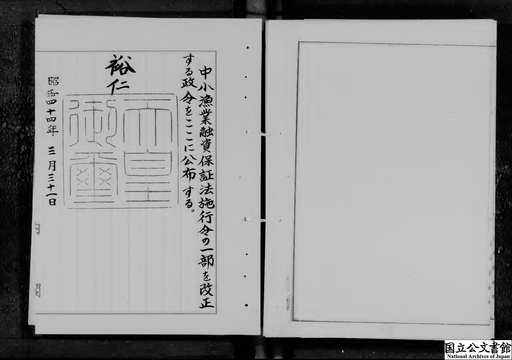 中小漁業融資保証法施行令の一部を改正
する政令をここに公布する。
裕仁
天皇
御璽
昭和四十四年 三月三十一日
国立公文書館
National Archives of Japan